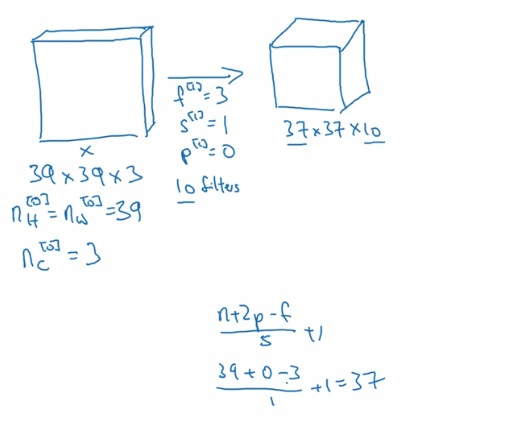 x
39 x 39 x 3
n_H^[0] = n_W^[0] = 39
n_C^[0] = 3
f^[1] = 3
s^[1] = 1
p^[1] = 0
10 filters
37 x 37 x 10
n+2p-f
s
+1
39 + 0 - 3
1
+1 = 37